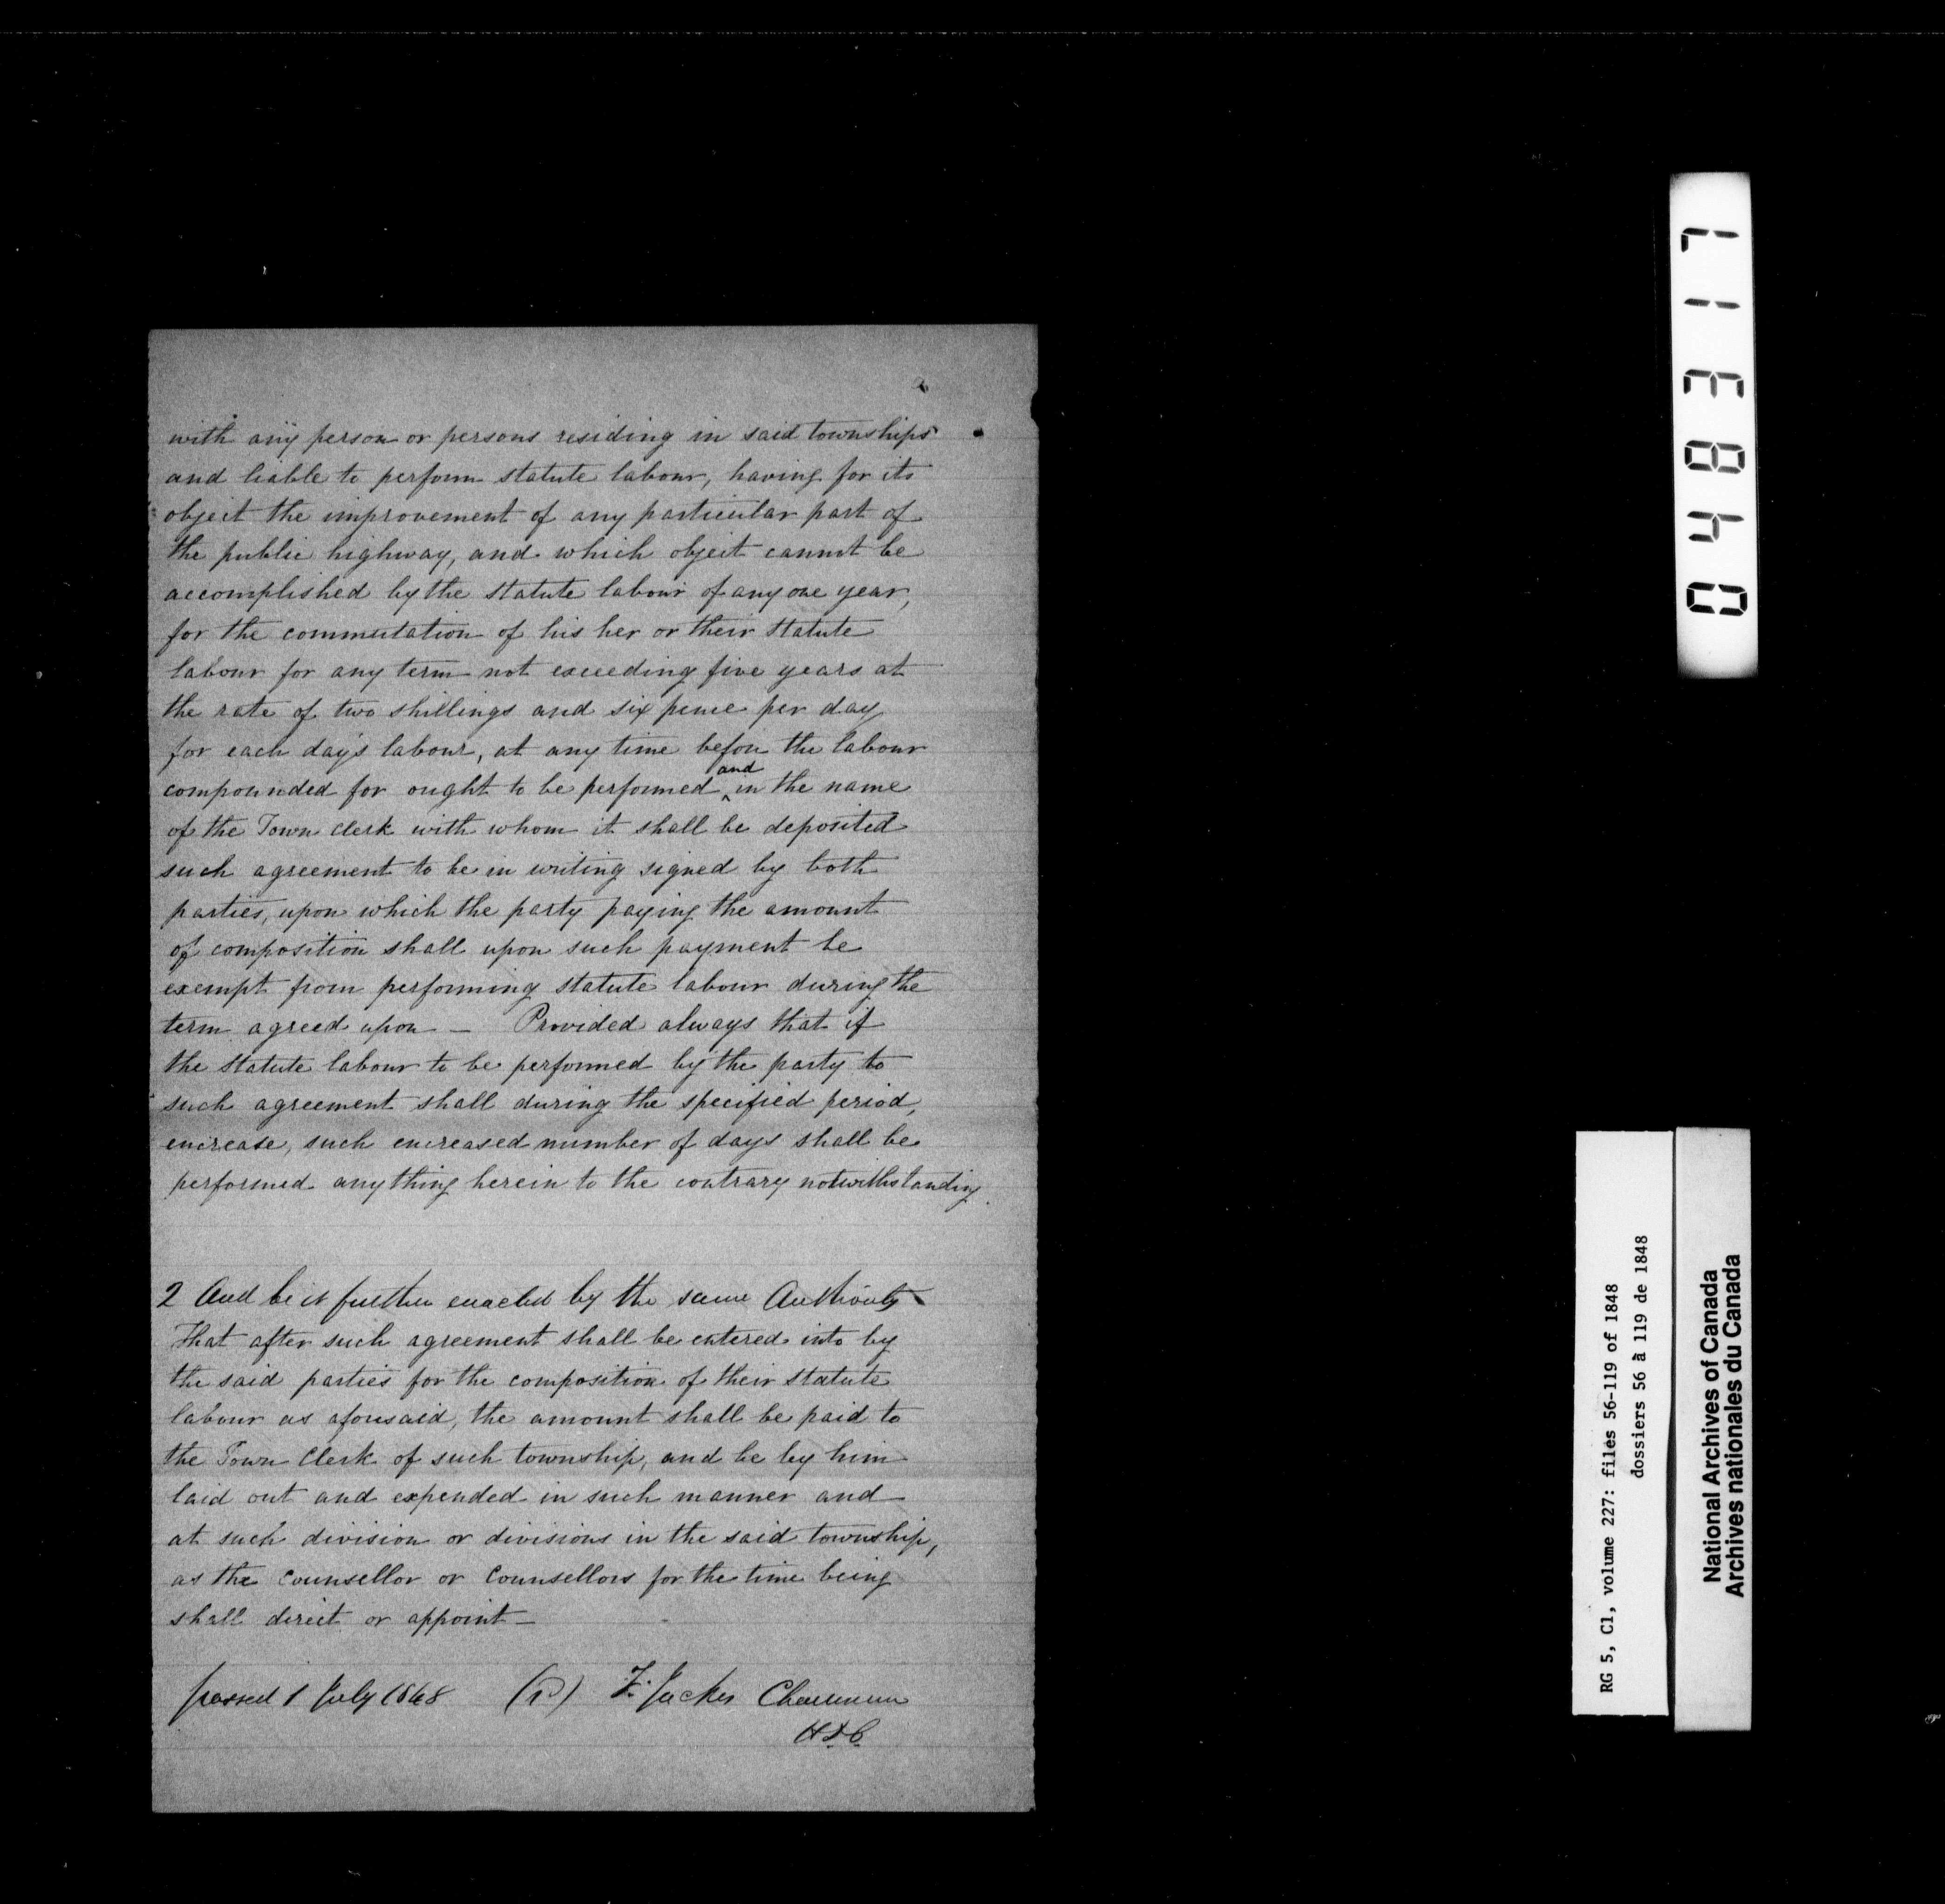 with any person or persons residing in said townships
and liable to perform statute labour, having for its
object the improvement of any particular part of
the public highway, and which object cannot be
accomplished by the statute labour of any one year,
for the commutation of his her or their statute
labour for any term not exceeding five years at
the rate of two shillings and six pence per day
for each day's labour, at any time before the labour
compounded for ought to be performed and in the name
of the Town Clerk with whom it shall be deposited
such agreement to be in writing signed by both
parties, upon which the party paying the amount
of composition shall upon such payment be
exempt from performing statute labour during the
term agreed upon — Provided always that if
the statute labour to be performed by the party to
such agreement shall during the specified period,
encrease, such encreased number of days shall be
performed anything herein to the contrary notwithstanding.
2 And be it further enacted by the same Authority
That after such agreement shall be entered into by
the said parties for the composition of their statute
labour as aforesaid, the amount shall be paid to
the Town Clerk of such township, and be by him
laid out and expended in such manner and
at such division or divisions in the said township,
as the Counsellor or Counsellors for the time being
shall direct or appoint —
passed 1 July 1848 Chairman
043817
RG 5, C1, volume 227: files 56-119 of 1848
dossiers 56 à 119 de 1848
National Archives of Canada
Archives nationales du Canada